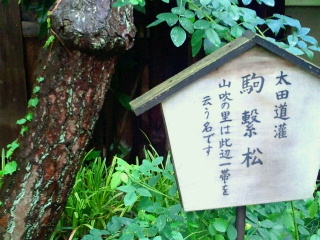 太田道灌
駒繋松
山吹の里は此辺一帯を
云う名です